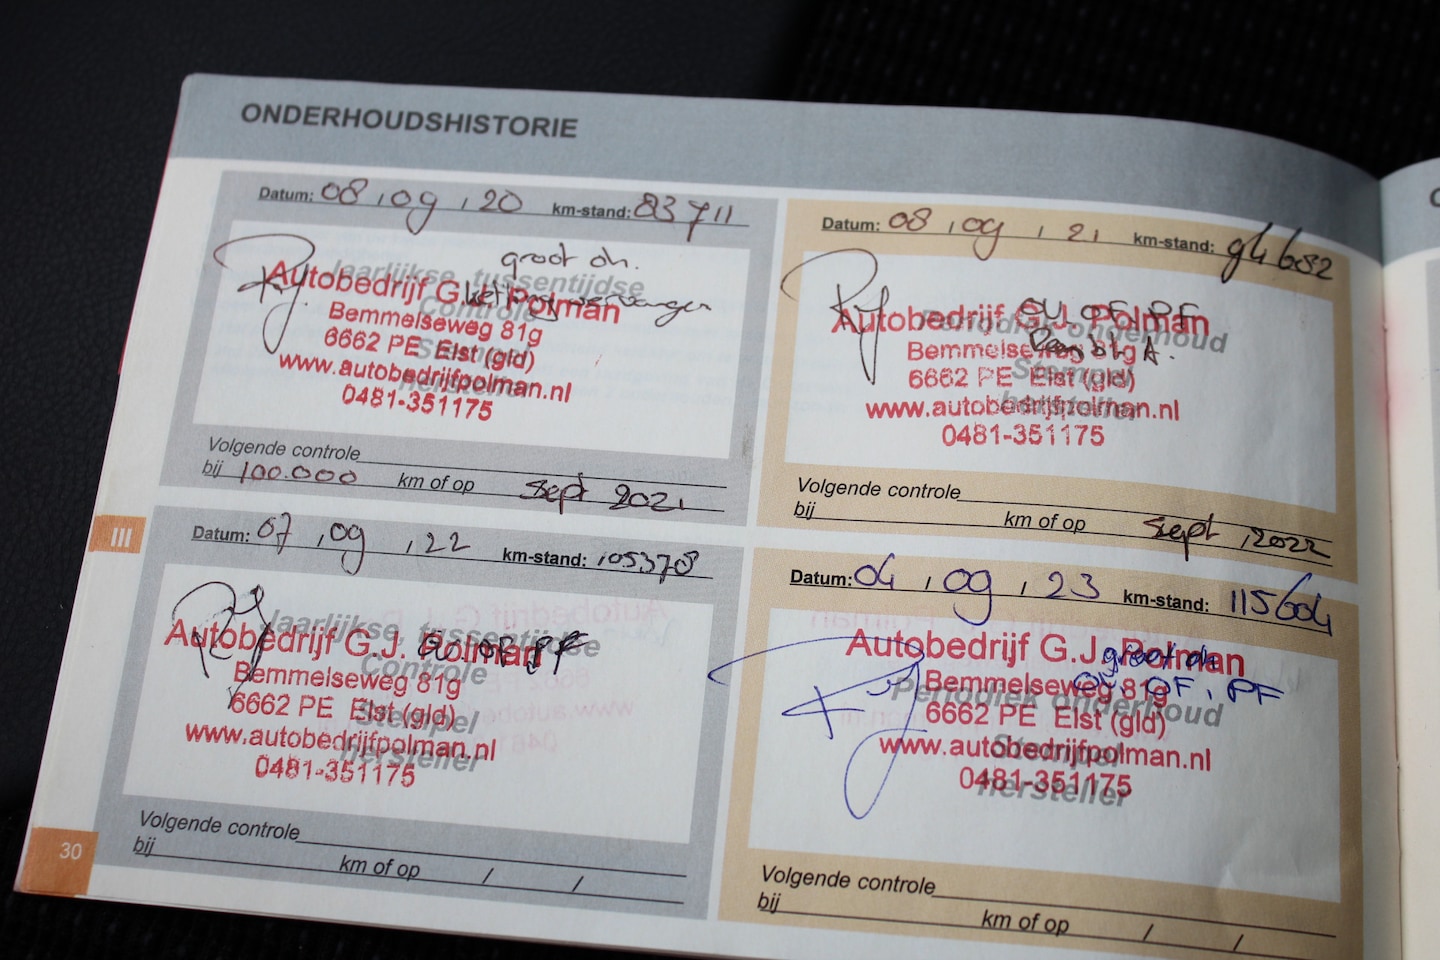 ONDERHOUDSHISTORIE
Datum: 08,09,20 km-stand: 83711
groot oh.
Jaarlijkse tussentijdse
Autobedrijf G.J. Polman
ketting vervangen
Controle
Bemmelseweg 81g
6662 PE Elst (gld)
Stempel
www.autobedrijfpolman.nl
hersteller
0481-351175
Volgende controle
bij 100.000 km of op sept 2021
Datum: 08,09,21 km-stand: 94682
OV. OF. PF
Autobedrijf G.J. Polman
Periodiek onderhoud
Bemmelseweg 81g
6662 PE Elst (gld)
Stempel
www.autobedrijfpolman.nl
hersteller
0481-351175
Volgende controle
bij km of op sept ,2022
III
Datum: 07,09,22 km-stand: 105378
Jaarlijkse tussentijdse
Autobedrijf G.J. Polman
OV OF PF
Controle
Bemmelseweg 81g
6662 PE Elst (gld)
Stempel
www.autobedrijfpolman.nl
hersteller
0481-351175
Volgende controle
bij km of op / /
Datum: 04,09,23 km-stand: 115604
Autobedrijf G.J. Polman
groot oh
Bemmelseweg 81g
OV. OF. PF
Periodiek onderhoud
6662 PE Elst (gld)
Stempel
www.autobedrijfpolman.nl
hersteller
0481-351175
Volgende controle
bij km of op / /
30